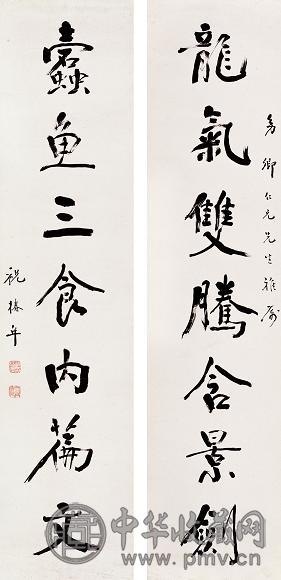 卿仁兄先生雅屬
龍氣雙騰含景劍
蠹魚三食內篇文
祝椿年
中华收藏网
www.pmv.cn